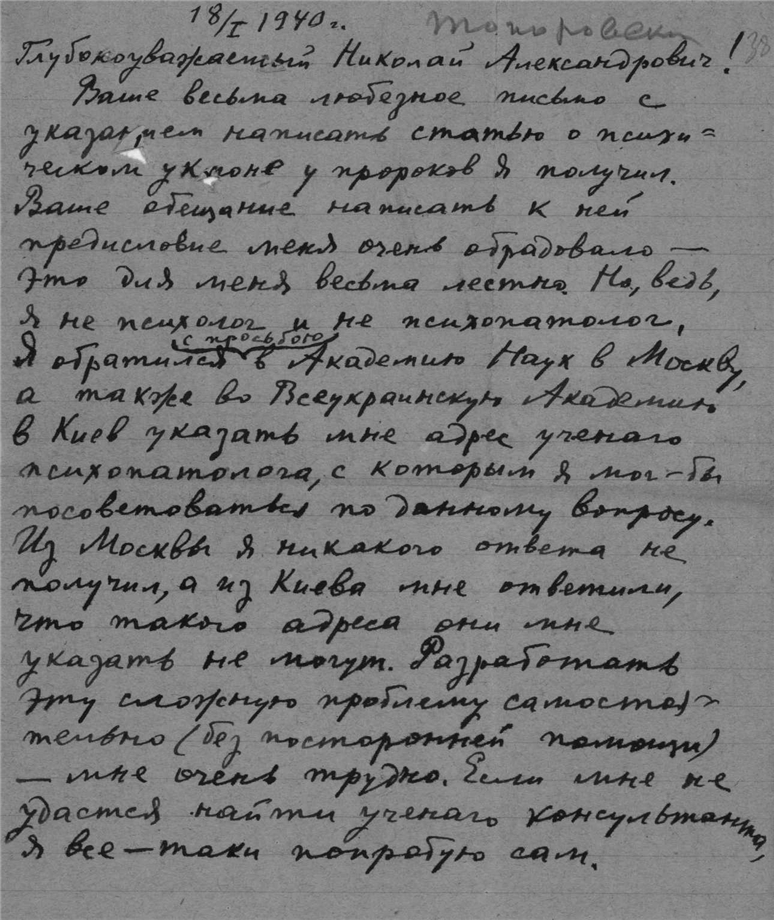 18/I 1940 г.
Топоровски
38
Глубокоуважаемый Николай Александрович!
Ваше весьма любезное письмо с
указанием написать статью о психи=
ческом уклоне у пророков я получил.
Ваше обещание написать к ней
предисловие меня очень обрадовало —
это для меня весьма лестно. Но, ведь,
я не психолог и не психопатолог.
с просьбою
Я обратился в Академию Наук в Москву,
а также во Всеукраинскую Академию
в Киев указать мне адрес ученаго
психопатолога, с которым я мог-бы
посоветоваться по данному вопросу.
Из Москвы я никакого ответа не
получил, а из Киева мне ответили,
что такого адреса они мне
указать не могут. Разработать
эту сложную проблему самостоя=
тельно (без посторонней помощи)
— мне очень трудно. Если мне не
удастся найти ученаго консультанта,
я все-таки попробую сам.